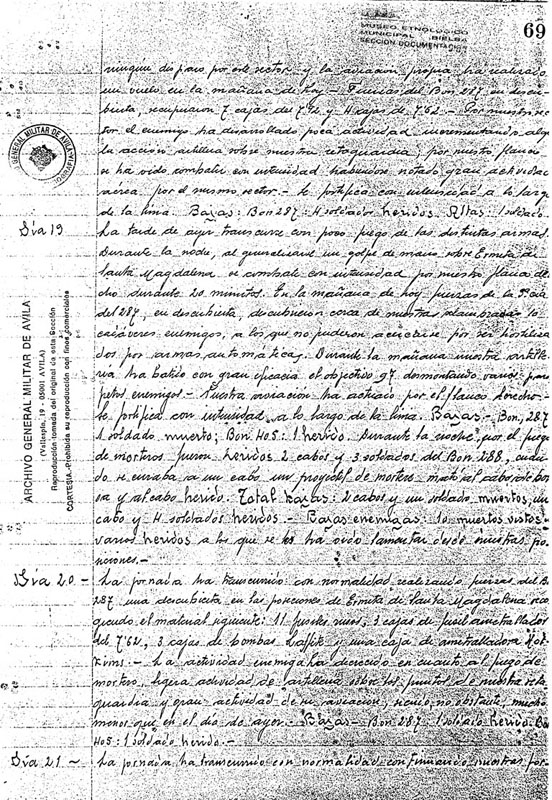 69
MUSEO ETNOLOGICO
MUNICIPAL BIELSA
SECCION DOCUMENTACION
GENERAL MILITAR DE AVILA
ARCHIVO GENERAL MILITAR DE AVILA
(Vallespin, 19 - 05001 AVILA)
Reproducción tomada del original de esta Sección
CORTESIA.-Prohibida su reproducción con fines comerciales
ningun disparo por este sector y la aviacion propia ha realizado
un vuelo en la mañana de hoy - Fuerzas del Bon. 287 en descu-
bierta, recuperaron 7 cajas del 7'92 y 4 cajas de 7'62 - Por nuestro sec-
tor el enemigo ha desarrollado poca actividad incrementando algo
la acción artillera sobre nuestra retaguardia; por nuestro flanco
se ha oido combatir con intensidad habiendose notado gran actividad
aérea por el mismo sector. - Se fortifica con intensidad a lo largo
de la linea. Bajas: Bon 287: 4 soldados heridos. Altas: 1 soldado
Día 19
La tarde de ayer transcurre con poco fuego de las distintas armas.
Durante la noche, al un golpe de mano sobre Ermita de
Santa Magdalena se combate con intensidad por nuestro flanco dere-
cho durante 20 minutos. En la mañana de hoy fuerzas de la 3ª cia
del 287, en descubierta, descubrieron cerca de nuestras alambradas 10
cadáveres enemigos, a los que no pudieron acercarse por ser hostiliza-
dos por armas automáticas. Durante la mañana nuestra artille-
ria ha batido con gran eficacia el objetivo 97 desmontando varios para-
petos enemigos - Nuestra aviación ha actuado por el flanco derecho -
Se fortifica con intensidad a lo largo de la linea. Bajas - Bon, 287
1 soldado muerto; Bon 405: 1 herido. Durante la noche por el fuego
de morteros fueron heridos 2 cabos y 3 soldados del Bon 288, cuan-
do se curaba a un cabo un proyectil de mortero mató al cabo
y al cabo herido. Total bajas: 2 cabos y un soldado, muertos, un
cabo y 4 soldados heridos. - Bajas enemigas: 10 muertos vistos
varios heridos a los que se les ha oido lamentar desde nuestras po-
siciones. -
Día 20 -
La jornada ha transcurrido con normalidad realizando fuerzas del B.
287 una descubierta en las posiciones de Ermita de Santa Magdalena reco-
giendo el material siguiente: 11 fusiles rusos, 3 cajas de fusil ametrallador
del 7'62, 3 cajas de bombas Lafite y una caja de ametralladora Hot-
kins. - La actividad enemiga ha decrecido en cuanto al fuego de
mortero, ligera actividad de artilleria sobre los puntos de nuestra reta-
guardia y gran actividad de su aviación, siendo, no obstante, mucho
menor que en el día de ayer. - Bajas - Bon 287 1 soldado herido. Bon
405: 1 soldado herido. -
Día 21 -
La jornada ha transcurrido con normalidad continuando nuestras for-